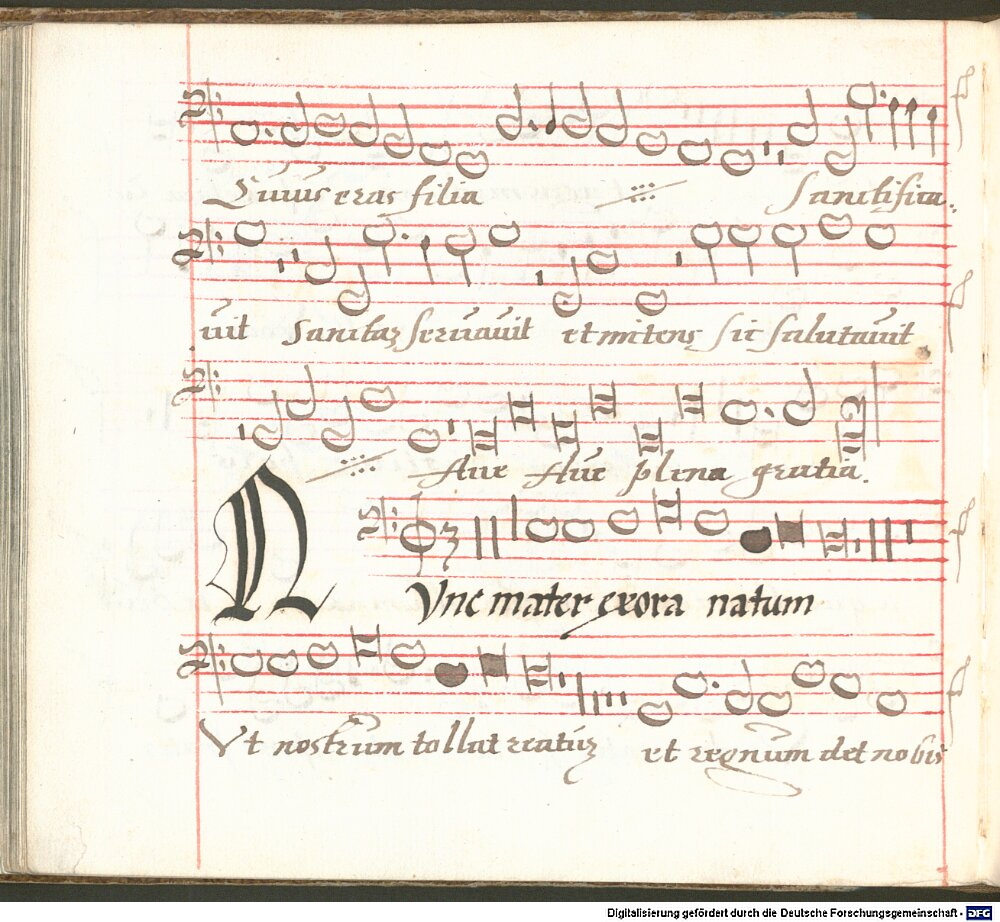 Cuius eras filia Sanctifica.
uit Sanctitaz Seruauit et mitens Sic Salutauit
Aue Aue plena gratia.
NVnc mater exora natum
Vt nostrum tollat reatuz et regnum det nobis
Digitalisierung gefördert durch die Deutsche Forschungsgemeinschaft - DFG